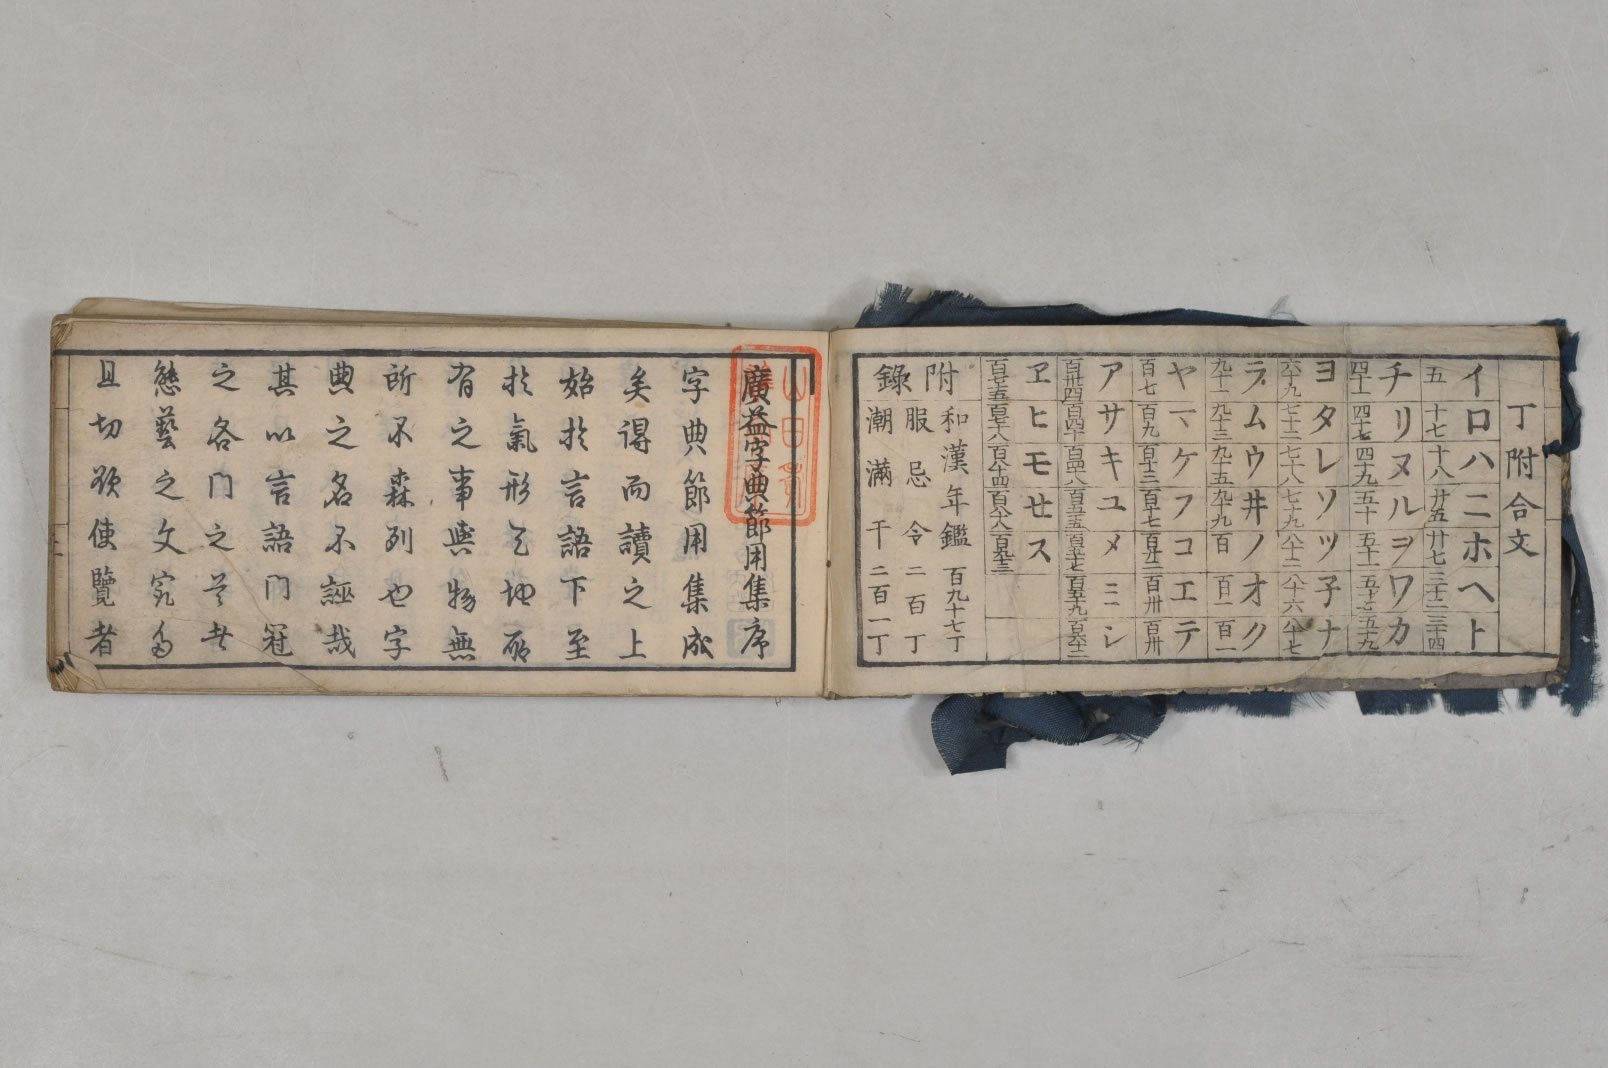 丁附合文
イロハニホヘト
五 十七 十八 廿五 廿七 三十二 三十四
チリヌルヲワカ
四十 四十七 四十九 五十 五十一 五十三 五十九
ヨタレソツ子ナ
六十九 七十二 七十八 七十九 八十二 八十六 八十七
ラムウ井ノオク
九十一 九十三 九十五 九十九 百 百一 百二
ヤマケフコエテ
百七 百九 百十二 百十七 百廿二 百卅 百卅
アサキユメミシ
百卅四 百四十 百四十八 百五十五 百五十七 百五十九 百六十二
ヱヒモせス
百七十五 百七十八 百八十四 百八十八 百九十三
附錄
和漢年鑑 百九十七丁
服忌令 二百丁
潮滿干 二百一丁
廣益字典節用集序
字典節用集成
矣得而讀之上
始於言語下至
於氣形乞地所
有之事與物無
所不森列也字
典之名不誣哉
其以言語門冠
之各門之首者
態藝之文究多
且切欲使覽者